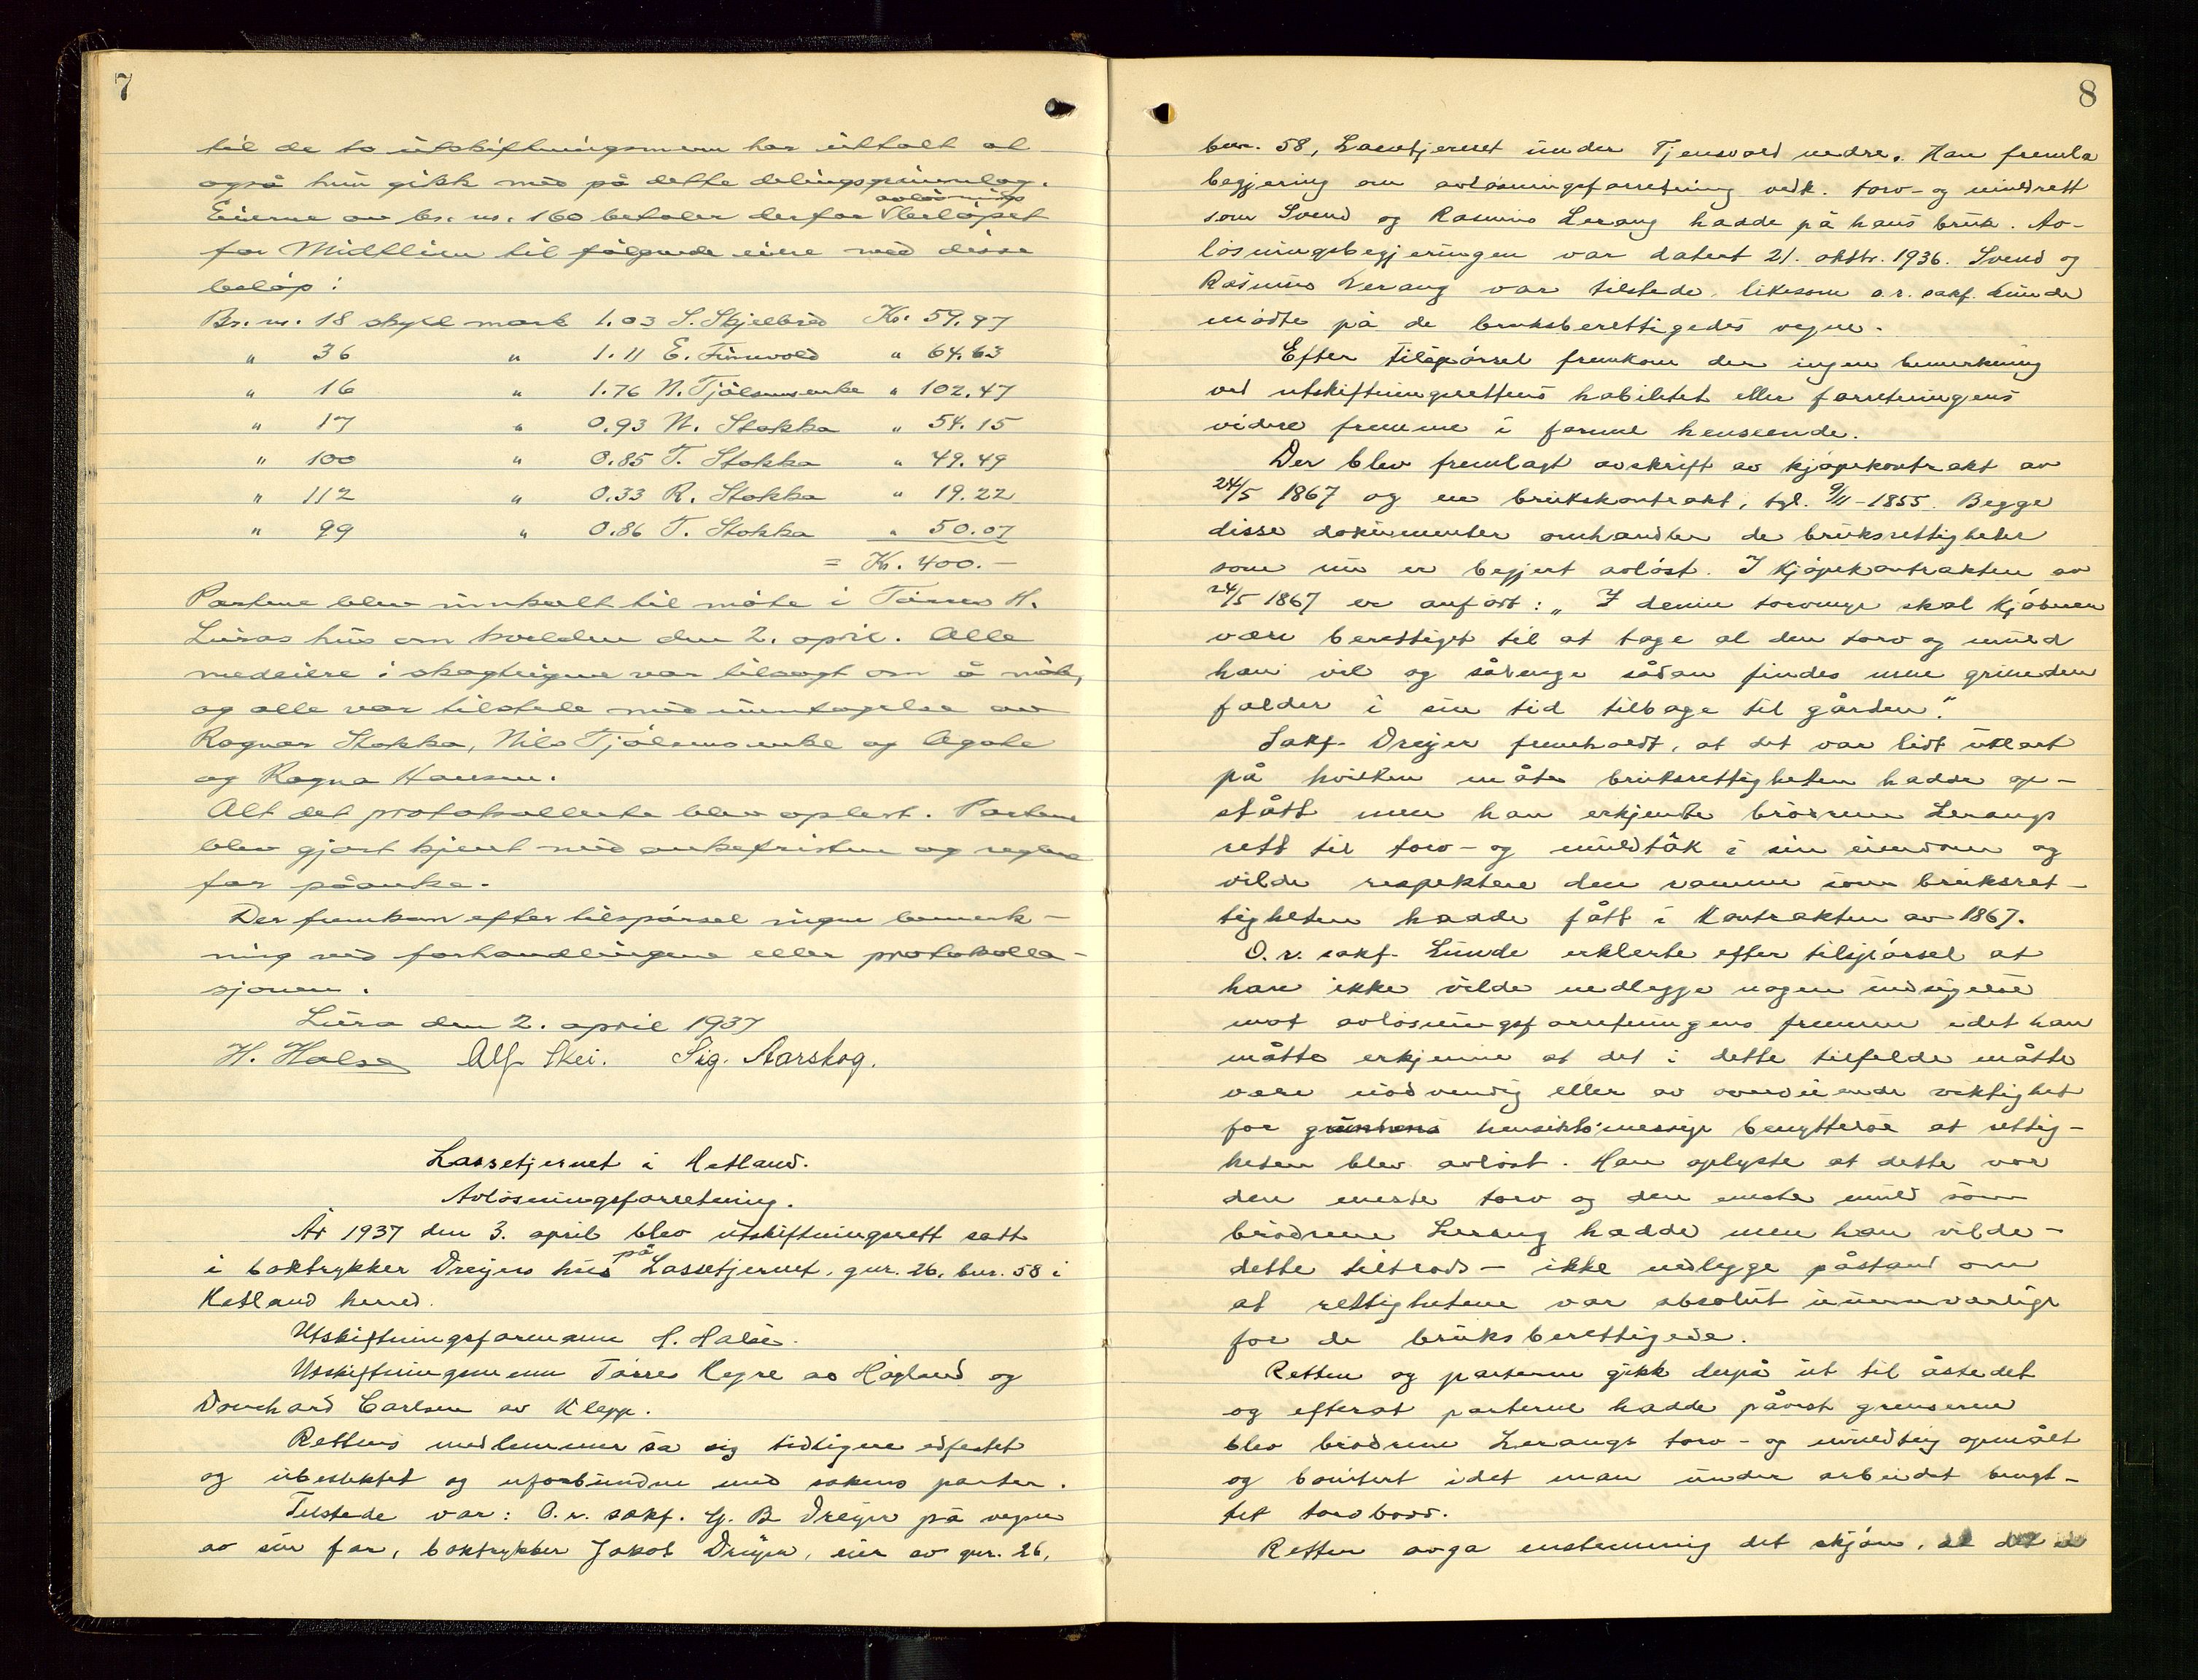 7
til de to utskiftningsmenn har uttalt at
også hun gikk med på dette delingsgrunnlag.
Eierne av br. nr. 160 betaler derfor avløsningsbeløpet
for Midtlien til følgende eiere med disse
beløp:
Br. nr. 18 skyld mark 1.03 S. Skjelbred Kr. 59.97
" 36 " 1.11 E. Finnvold " 64.63
" 16 " 1.76 N. Tjälsmsenke " 102.47
" 17 " 0.93 N. Stokka " 54.15
" 100 " 0.85 T. Stokka " 49.49
" 112 " 0.33 R. Stokka " 19.22
" 99 " 0.86 T. Stokka " 50.07
= Kr. 400.-
Partene blev innkalt til møte i Tørres H.
Luras hus om kvelden den 2. april. Alle
medeiere i skogteigene var tilsagt om å møte,
og alle var tilstede med unntagelse av
Ragnar Stokka, Nils enke og Agate
og Ragna Hansen.
Alt det protokollerte blev oplest. Partene
blev gjort kjent med ankefristen og reglene
for påanke.
Der fremkom efter tilspørsel ingen bemerk-
ning ved forhandlingene eller protokolla-
sjonen.
Lura den 2. april 1937
H. Halse Alf Skei. Sig. Aarskog.
Lassetjernet i Hetland.
Avløsningsforretning.
År 1937 den 3. april blev utskiftningsrett satt
i boktrykker Dreyers hus på Lassetjernet, gnr. 26, bnr. 58 i
Hetland herred.
Utskiftningsformann H. Halse.
Utskiftningsmenn Tørres Hegre av Høgland og
Carlsen av Klepp.
Rettens medlemmer sa sig tidligere edfestet
og ubeslektet og uforbundne med sakens parter.
Tilstede var: O.r. sakf. Dreyer på vegne
av sin far, boktrykker Jakob Dreyer, eier av gnr. 26,
8
bnr. 58, Lassetjernet under Tjensvold nedre. Han fremla
begjering om avløsningsforretning vedk. torv- og muldrett
som Svend og Rasmus Lerang hadde på hans bruk. Av-
løsningsbegjeringen var datert 21. oktbr. 1936. Svend og
Rasmus Lerang var tilstede, likesom o.r. sakf. Lunde
møtte på de bruksberettigedes vegne.
Efter tilspørsel fremkom der ingen bemerkning
ved utskiftningsrettens habilitet eller forretningens
videre fremme i formel henseende.
Der blev fremlagt avskrift av kjøpekontrakt av
24/5 1867 og en brukskontrakt, tgl. 9/11-1855. Begge
disse dokumenter omhandler de bruksrettigheter
som nu er begjert avløst. I Kjøpekontrakten av
24/5 1867 er anført: „I denne torvmyr skal kjøberen
være berettiget til at tage al den torv og muld
han vil og sålenge sådan findes men grunden
falder i sin tid tilbage til gården."
Sakf. Dreyer fremholdt, at det var lidt uklart
på hvilken måte bruksrettigheten hadde op-
stått men han erkjente brødrene Lerangs
rett til torv- og muldtak i sin eiendom og
vilde respektere den ramme som bruksret-
tigheten hadde fått i Kontrakten av 1867.
O.r. sakf. Lunde erklerte efter tilspørsel at
han ikke vilde nedlegge nogen innsigelse
mot avløsningsforretningens fremme idet han
måtte erkjenne at det i dette tilfelde måtte
være nødvendig eller av overveiende viktighet
for grunnens hensiktsmessige benyttelse at rettig-
heten blev avløst. Han oplyste at dette var
den eneste torv og den eneste muld som
brødrene Lerang hadde men han vilde -
dette tiltrods - ikke nedlegge påstand om
at rettighetene var absolut uunnværlige
for de bruksberettigede.
Retten og parterne gikk derpå ut til åstedet
og efterat parterne hadde påvist grensene
blev brødrene Lerangs torv- og muldteig opmålt
og bonitert idet man under arbeidet benyt-
tet torvbord.
Retten avga enstemmig det skjønn, at det